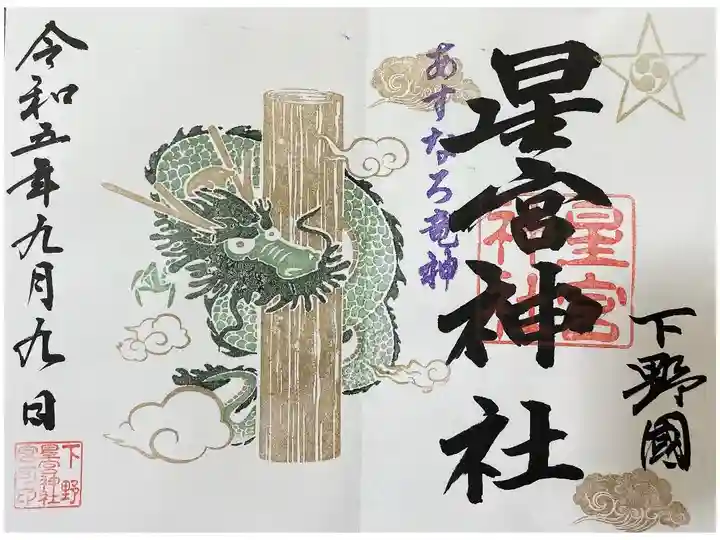 下野國
星宮神社
星宮
神社
あすなろ竜神
令和五年九月九日
下野
星宮神社